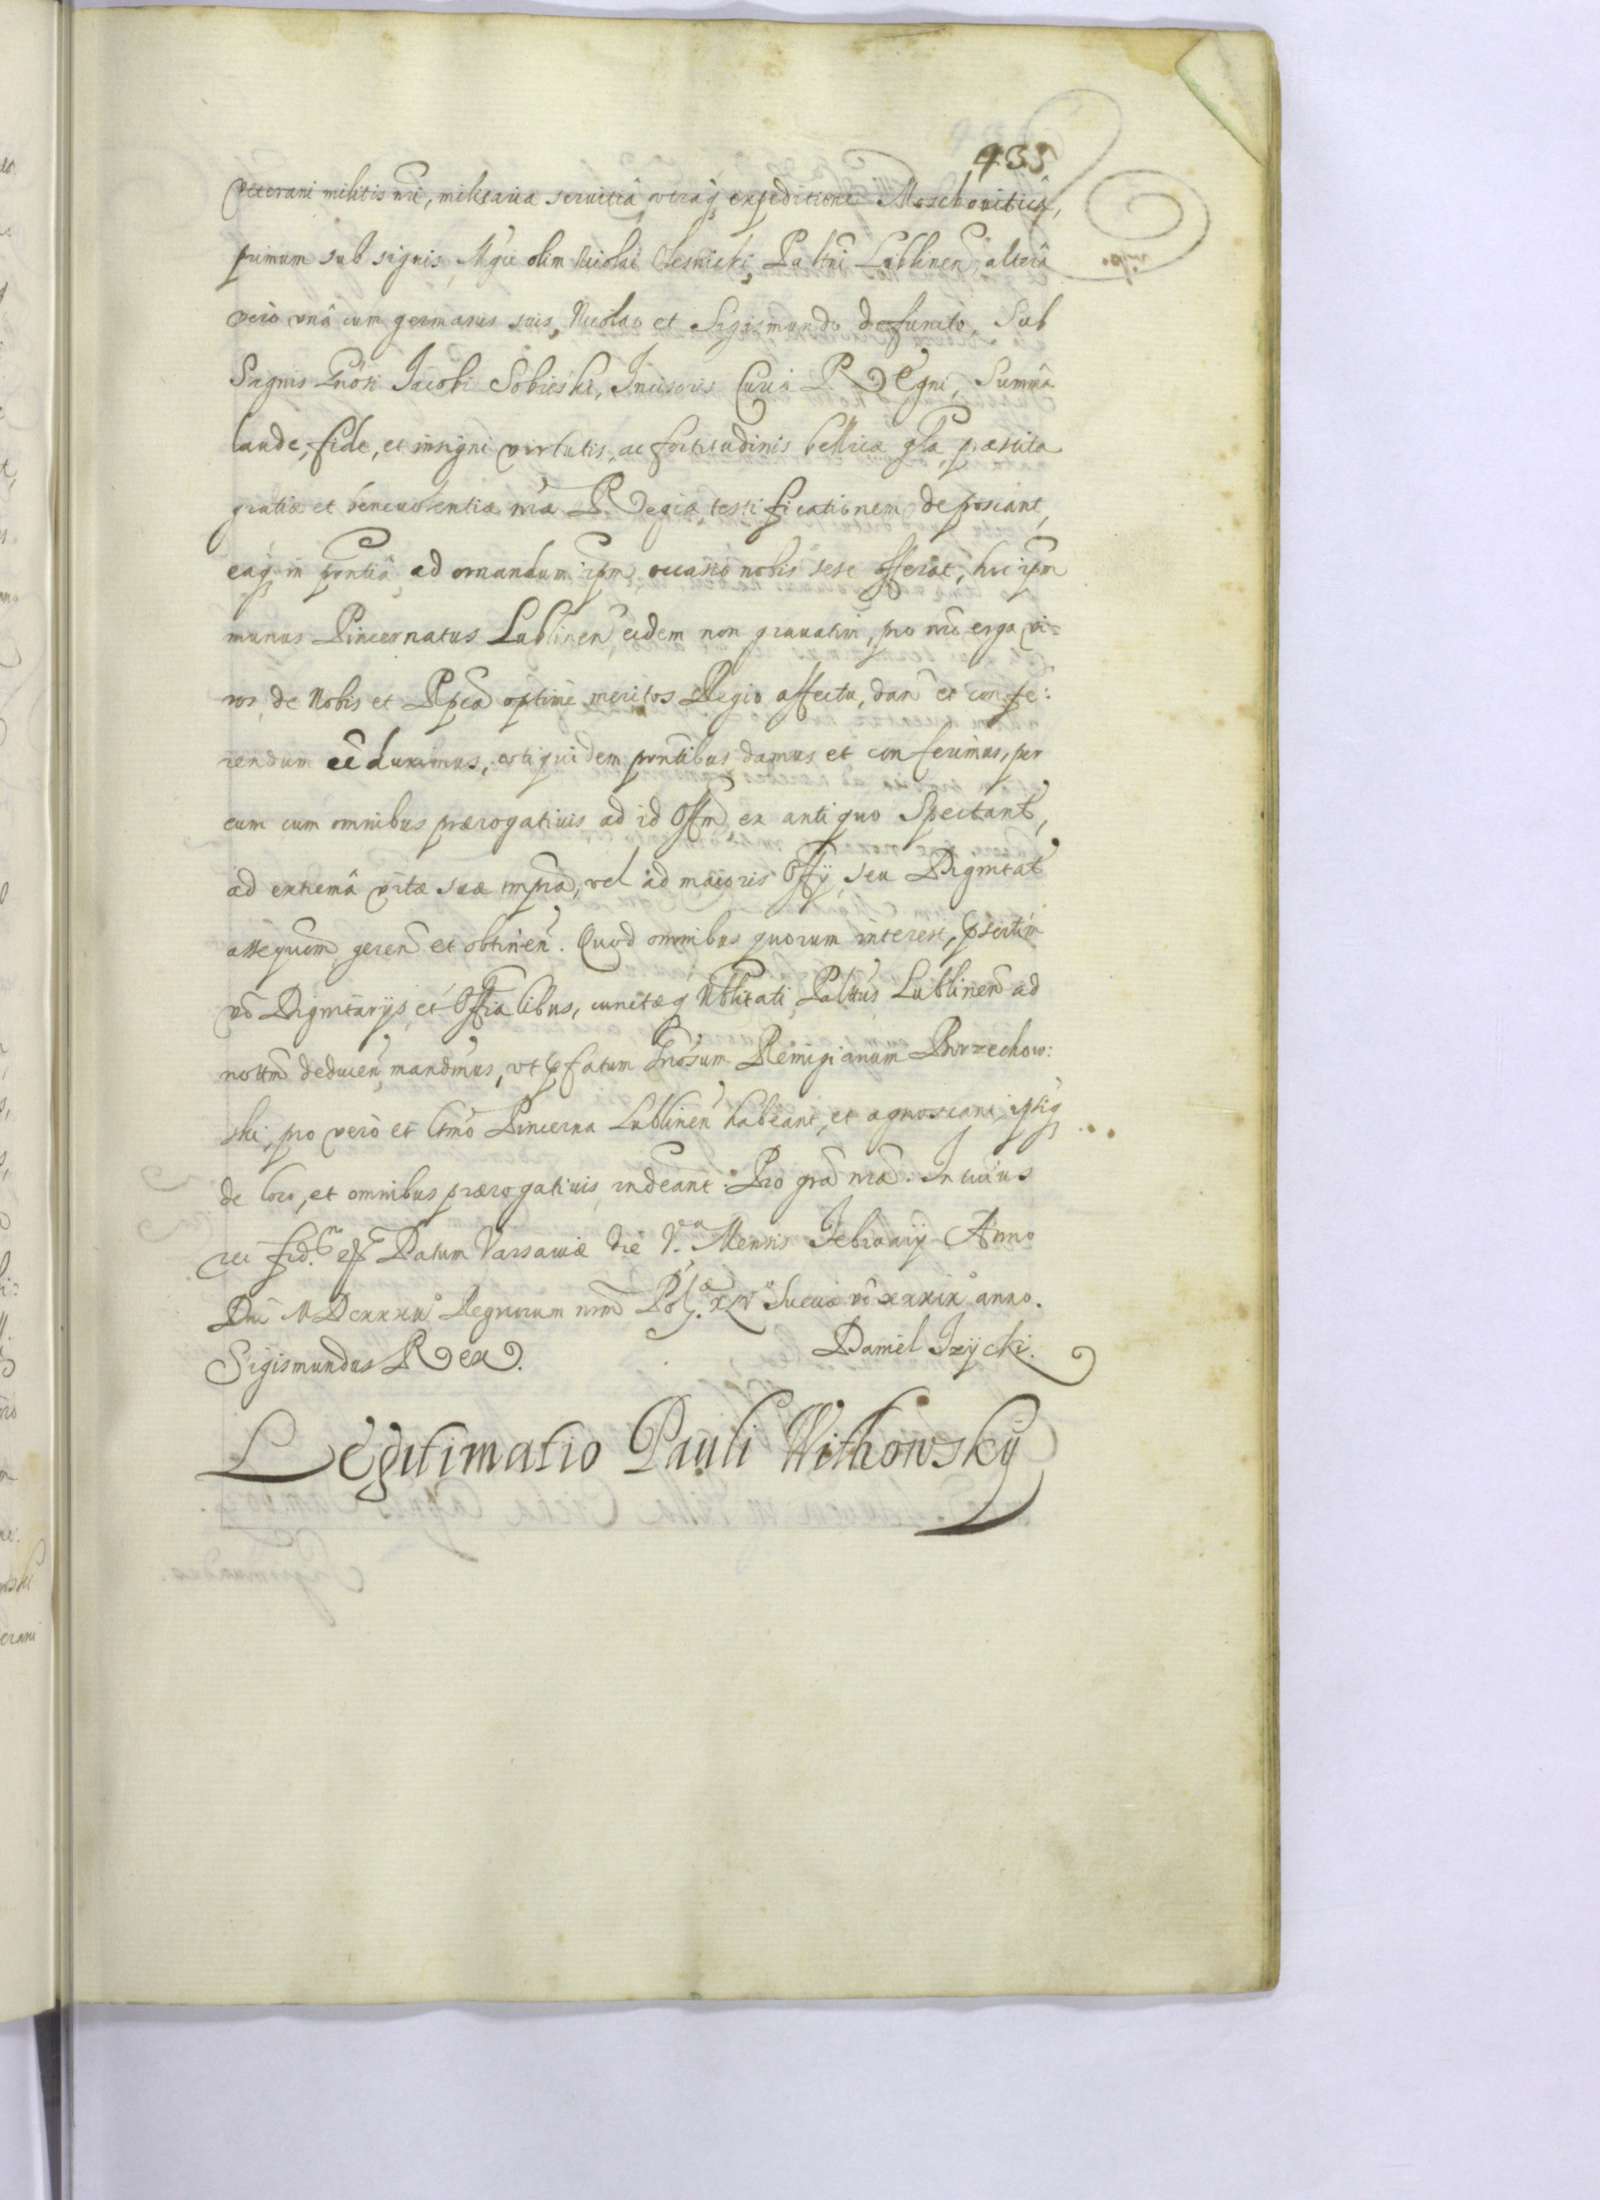 435
veterani militis nri, militaria servitia utraq expeditione Moschovitica,
primum sub signis Mgci olim Nicolai Olesnicki Paltni Lublinen, altera
vero una cum germanis suis, Nicolao et Sigismundo defuncto, Sub
Signis Gnosi Jacobi Sobieski, Incisoris Curiæ Regni, Summa
laude, fide, et insigni virtutis, ac fortitudinis bellicæ gla præstita
gratiæ et benevolentiæ nræ Regiæ testificationem deposcant,
eaq in pntia ad ornandum ipm occasio nobis sese offerat, hic ipm
munus Pincernatus Lublinen eidem non gravatim, pro nro erga vi=
ros de Nobis et Rpca optime meritos Regio affectu, dan et confe:
rendum ee duximus, uti quidem pntibus damus et conferimus, per
eum cum omnibus prærogativis ad id Offm ex antiquo Spectant,
ad extrema vitæ suæ tmpra, vel ad maioris Offy, seu Dignitat
assequom geren et obtinen. Quod omnibus quorum interest, psertim
vo Dignitarijs et Offialibus, cunctæq Nblitati Paltus Lublinen ad
notitm deducen mandmus, ut pfatum Gnosum Remigianum Brzechow:
ski, pro vero et ltmo Pincerna Lublinen habeant, et agnoscant, ipsiq
de loco, et omnibus prærogativis indeant. Pro gra nra. In cuius
rei fid. Datum Varsaviæ die V. Mensis February Anno
Dni Regnorum nrm Pol. XLV Sueciæ vo xxxix anno.
Sigismundus Rex.
Daniel Izycki.
Legitimatio Pauli Withowskÿ